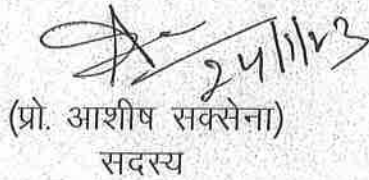 24/1/23
(प्रो. आशीष सक्सेना)
सदस्य